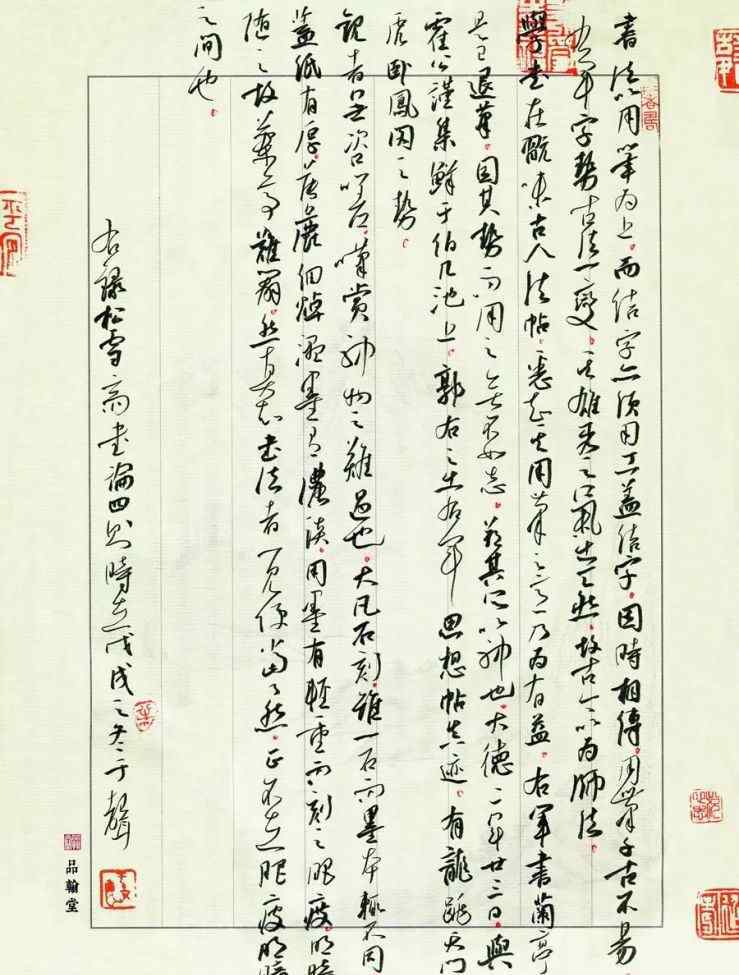 書法以用筆為上。而結字亦須用工。蓋結字。因時相傳。用筆千古不易
右軍字勢古法一變。其雄秀之氣出天然。故古今以為師法。
學書在玩味古人法帖。悉知其用筆之意。乃為有益。右軍書蘭亭
是已退筆。因其勢而用之。無不如志。茲其所以神也。大德二年廿三日。與
霍公謹集鮮于伯几池上。郭右之出右軍思想帖真迹。有龍跳天門
虎臥鳳閣之勢。
觀者無咨嗟嘆賞神物之難遇也。大凡石刻。雖一石而墨本輒不同
蓋紙有厚薄麤細燥濕。墨有濃淡。用墨有輕重。而刻之肥瘦。明暗
隨之。故蘭亭難辨。然真知書法者一見便當了然。正不在肥瘦明暗
之間也。
右錄松雪齋書論四則時在戊戌之冬于聲
品翰堂